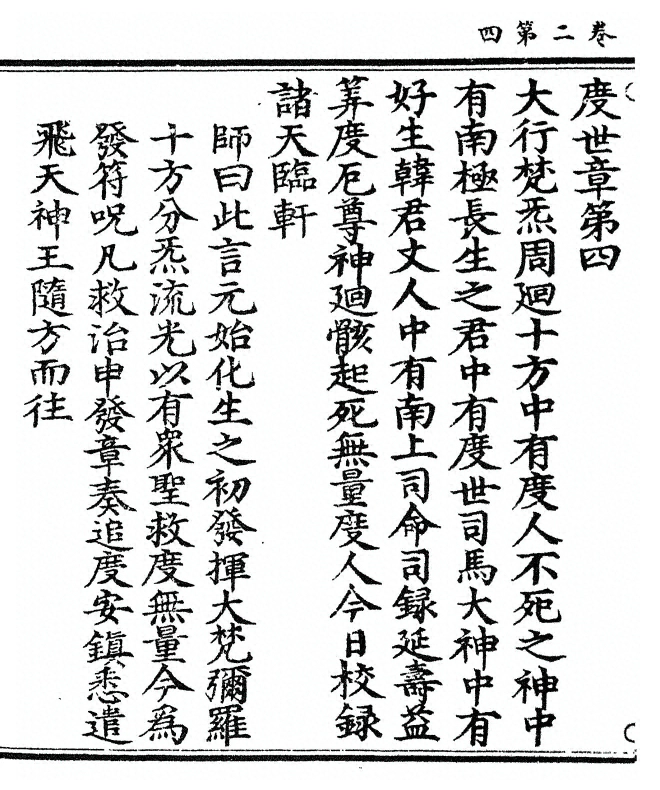 卷二第四
度世章第四
大行梵炁周廻十方中有度人不死之神中
有南極長生之君中有度世司馬大神中有
好生韓君丈人中有南上司命司録延壽益
筭度厄尊神廻骸起死無量度人今日校録
諸天臨軒
師曰此言元始化生之初發揮大梵彌羅
十方分炁流光以有衆聖救度無量今爲
發符呪凡救治申發章奏追度安鎮悉遣
飛天神王隨方而往